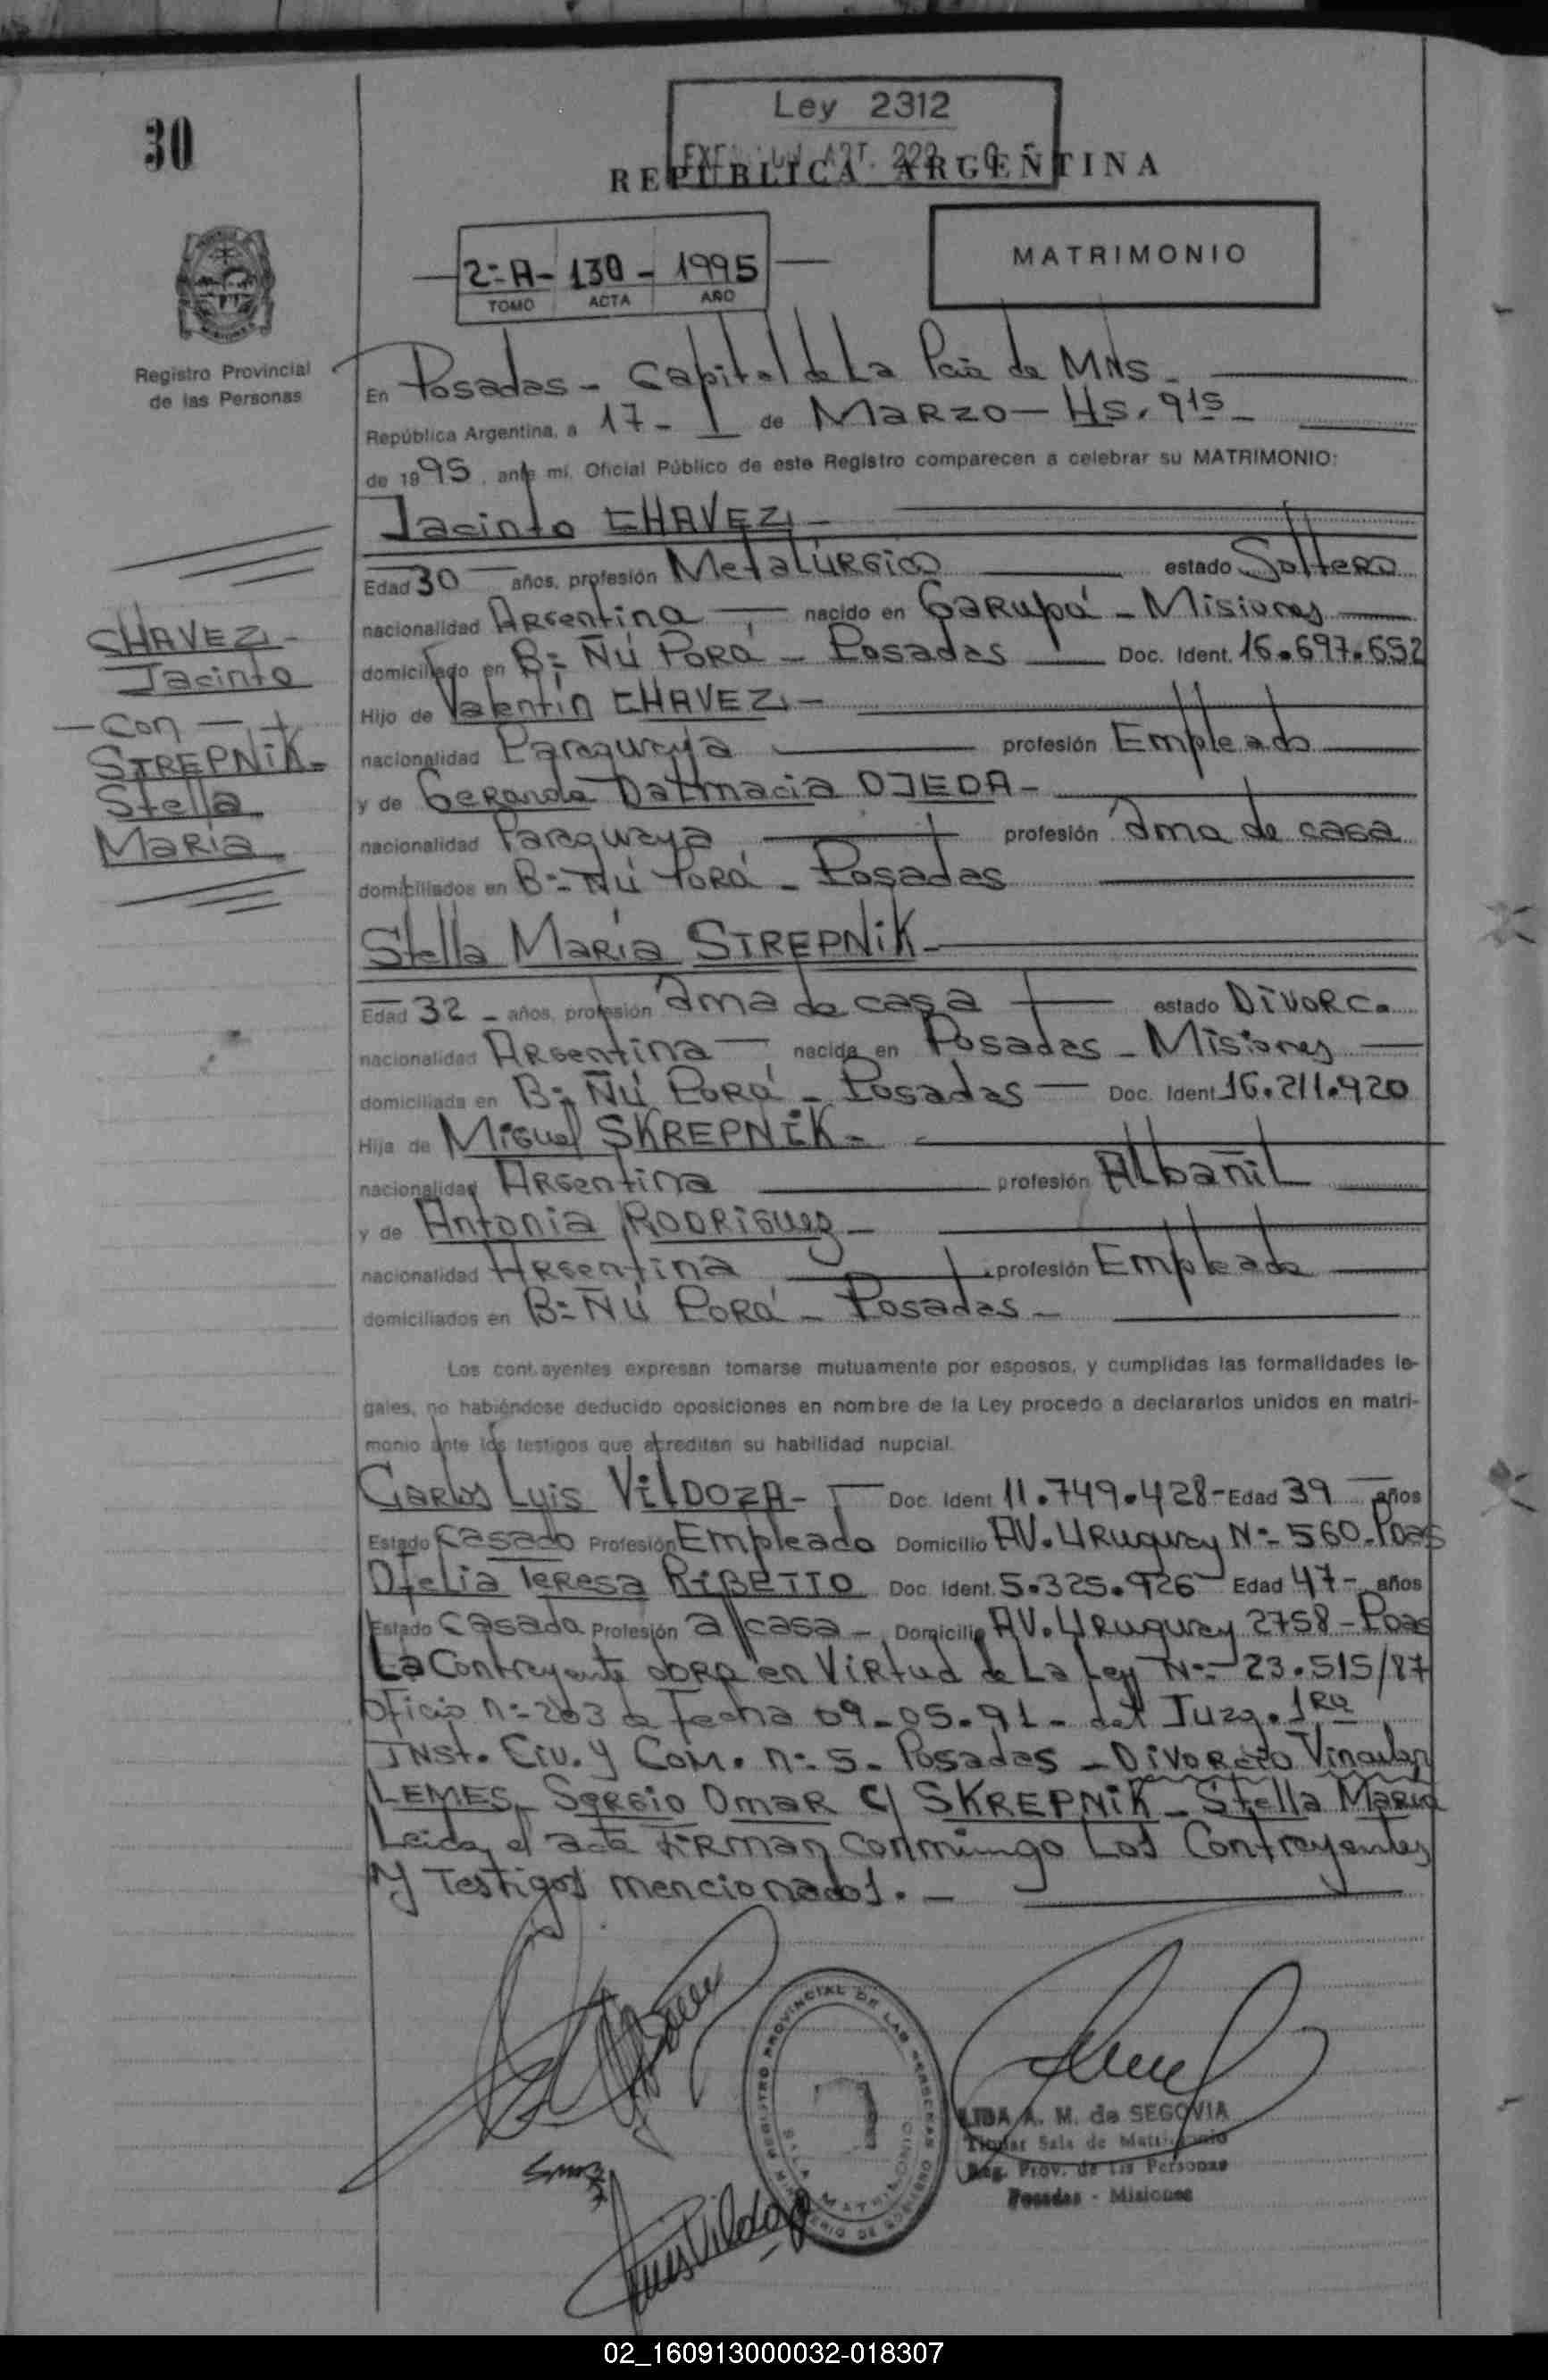 30
Ley 2312
ART. 222
REPUBLICA ARGENTINA
2º A - 130 - 1995
TOMO ACTA AÑO
MATRIMONIO
Registro Provincial
de las Personas
En Posadas - Capital de La Pcia de MNS -
República Argentina, a 17 - I de MARZO - Hs. 9 15 -
de 1995, ante mí, Oficial Público de este Registro comparecen a celebrar su MATRIMONIO:
Jacinto CHAVEZ -
Edad 30 años, profesión Metalúrgico estado Soltero
nacionalidad Argentina nacido en Garupá - Misiones
domiciliado en Bº Ñú Porá - Posadas Doc. Ident. 16.697.652
Hijo de Valentín CHAVEZ -
nacionalidad Paraguaya profesión Empleado
y de Geranda Dalmacia OJEDA -
nacionalidad Paraguaya profesión ama de casa
domiciliados en Bº Ñú Porá - Posadas
CHAVEZ -
Jacinto
- Con -
STREPNIK -
Stella
María
Stella María STREPNIK -
Edad 32 - años, profesión ama de casa estado Divorc.
nacionalidad Argentina nacida en Posadas - Misiones
domiciliada en Bº Ñú Porá - Posadas Doc. Ident. 16.211.920
Hija de Miguel SKREPNIK -
nacionalidad Argentina profesión Albañil
y de Antonia RODRIGUEZ -
nacionalidad Argentina profesión Empleada
domiciliados en Bº Ñú Porá - Posadas -
Los contrayentes expresan tomarse mutuamente por esposos, y cumplidas las formalidades le-
gales, no habiéndose deducido oposiciones en nombre de la Ley procedo a declararlos unidos en matri-
monio ante los testigos que acreditan su habilidad nupcial.
Carlos Luis VILDOZA - Doc. Ident. 11.749.428 - Edad 39 años
Estado Casado Profesión Empleado Domicilio AV. Uruguay Nº 560 - Pdas
Ofelia Teresa RIBETTO Doc. Ident. 5.325.926 Edad 47 - años
Estado Casada Profesión a/casa - Domicilio AV. Uruguay 2758 - Pdas
La Contrayente obra en Virtud de La Ley Nº 23.515/87
Oficio nº 203 de Fecha 09-05-91 - del Juzg. 1Ra
INST. Civ. y Com. nº 5 - Posadas - Divorcio Vincular
LEMES, Sergio Omar c/ SKREPNIK - Stella María
Leida el acta Firman conmingo Los Contrayentes
y Testigos mencionados. -
REGISTRO PROVINCIAL DE LAS PERSONAS
SALA MATRIMONIO
MINISTERIO DE GOBIERNO
LIDA A. M. de SEGOVIA
Titular Sala de Matrimonio
Reg. Prov. de las Personas
Posadas - Misiones
Luis Vildoza
02_160913000032-018307